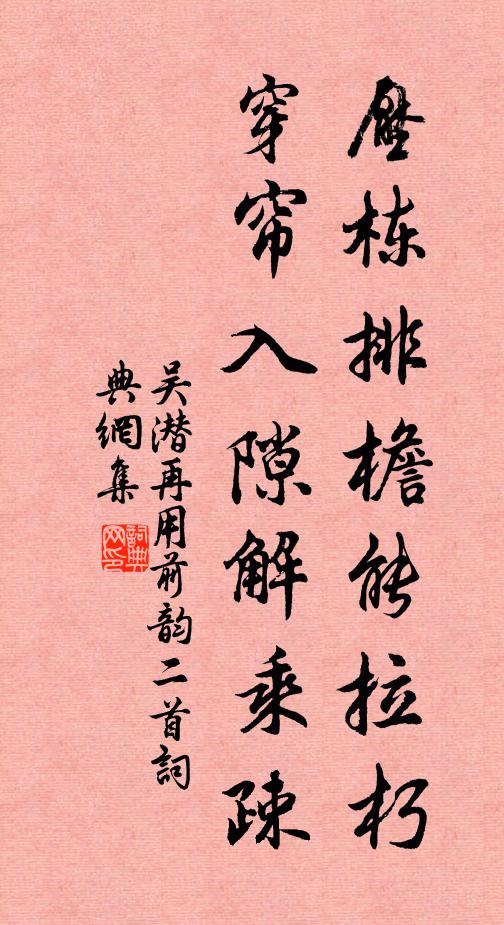 壓棟排檐能拉朽
穿帘入隙解乘疎
吴潛再用前韵二首詞
典網集
詞典
网印